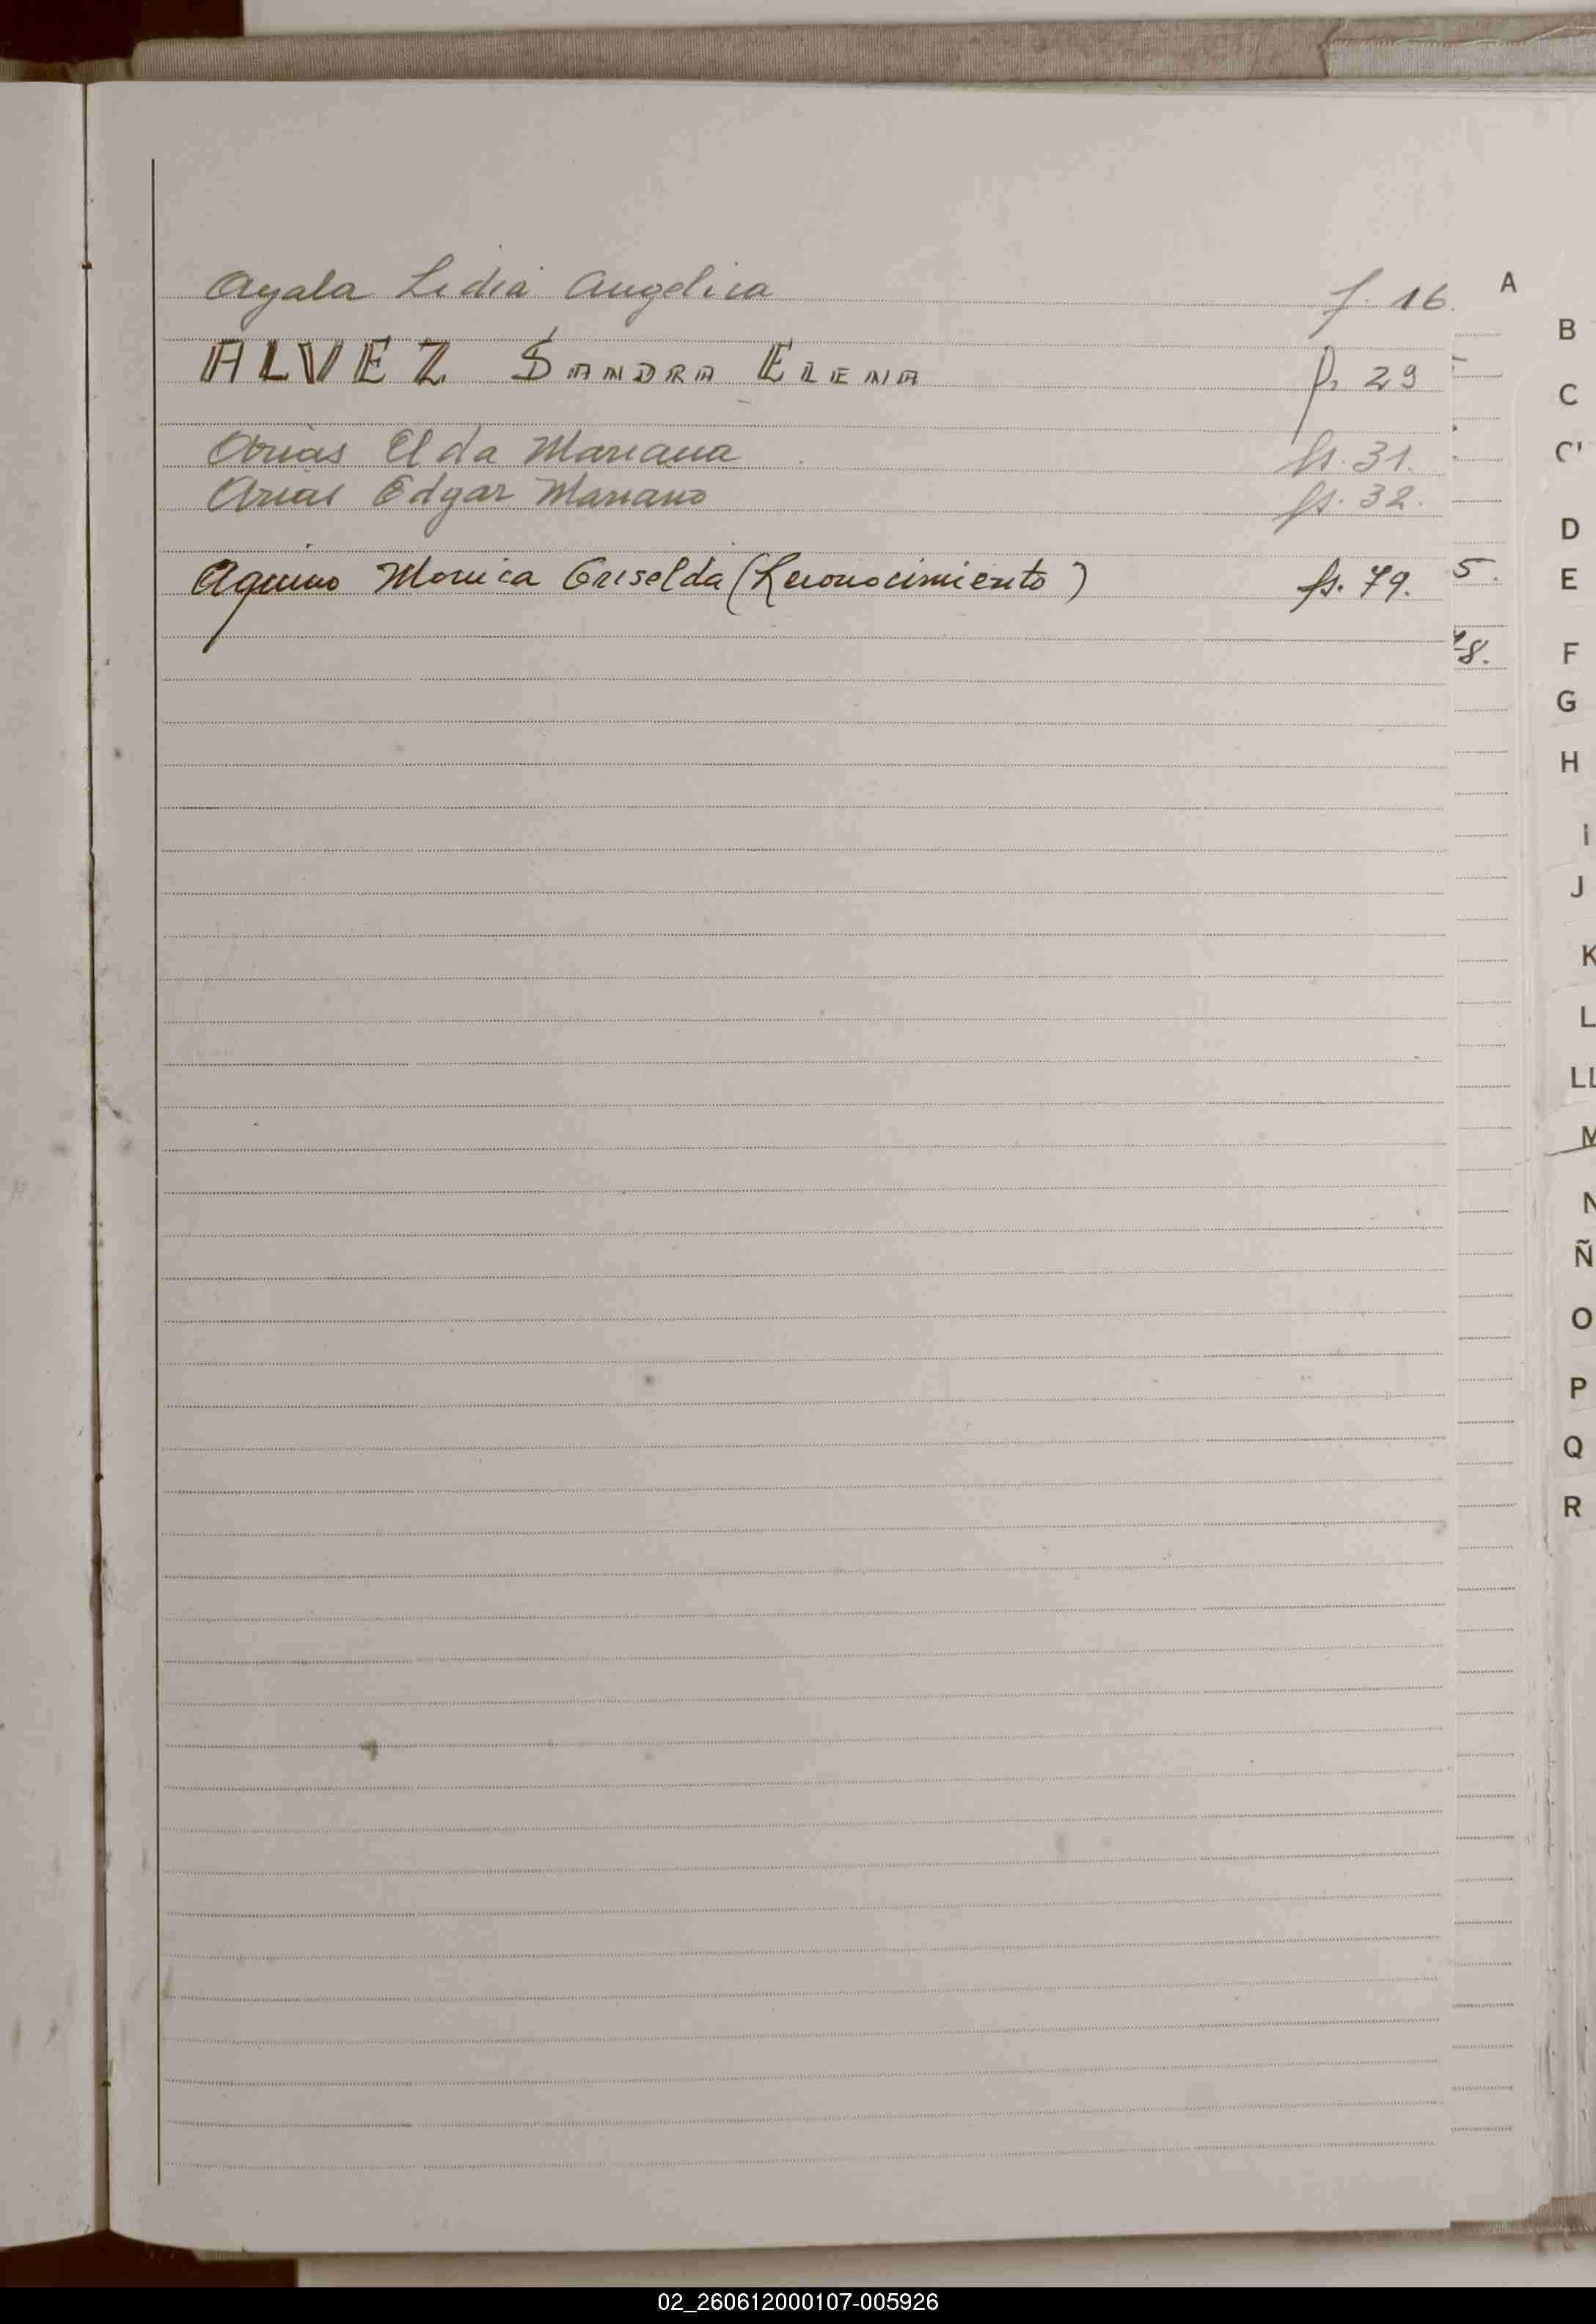 Ayala Lidia Angelica f. 16.
ALVEZ SANDRA ELENA f. 29
Arias Elda Mariana fs. 31.
Arias Edgar Mariano fs. 32.
Aquino Monica Griselda (Reconocimiento) fs. 79.
5.
8.
A
B
C
C'
D
E
F
G
H
I
J
K
L
LL
M
N
Ñ
O
P
Q
R
02_260612000107-005926